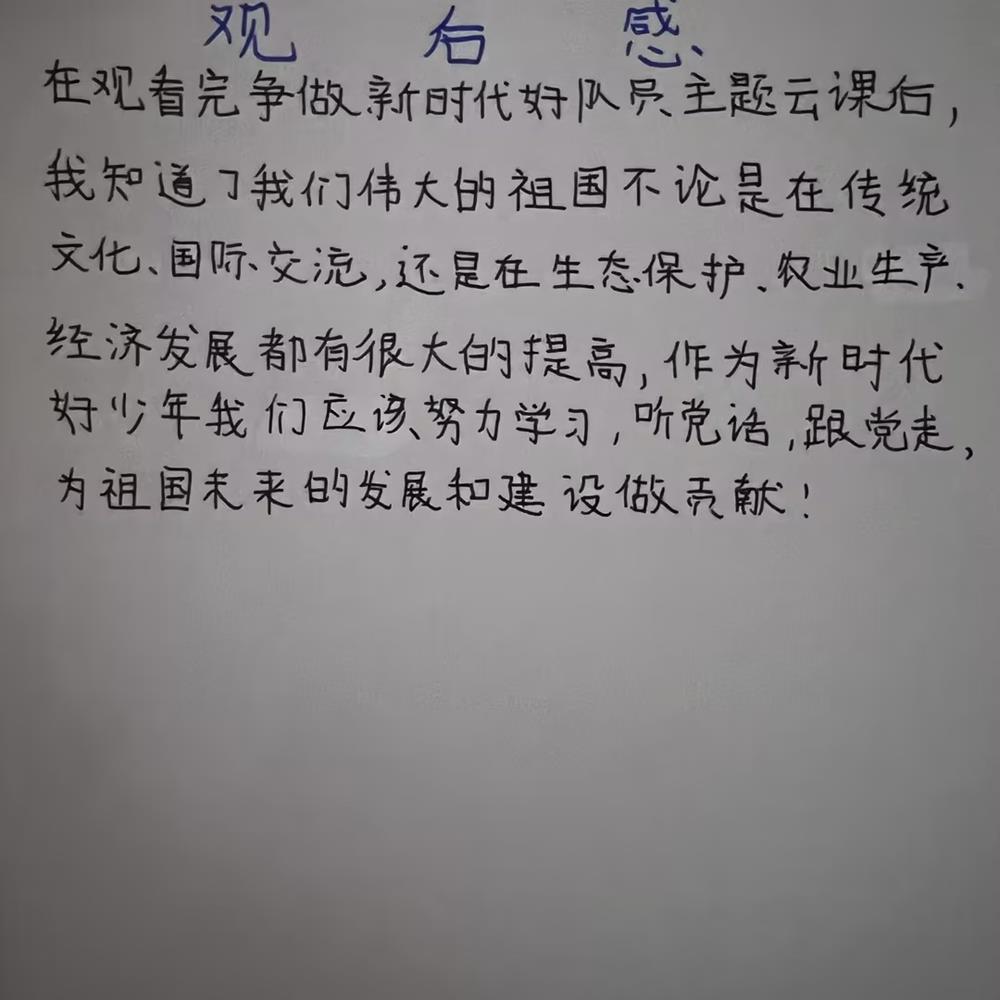 观后感
在观看完争做新时代好队员主题云课后,
我知道了我们伟大的祖国不论是在传统
文化、国际交流,还是在生态保护、农业生产、
经济发展都有很大的提高,作为新时代
好少年我们应该努力学习,听党话,跟党走,
为祖国未来的发展和建设做贡献!